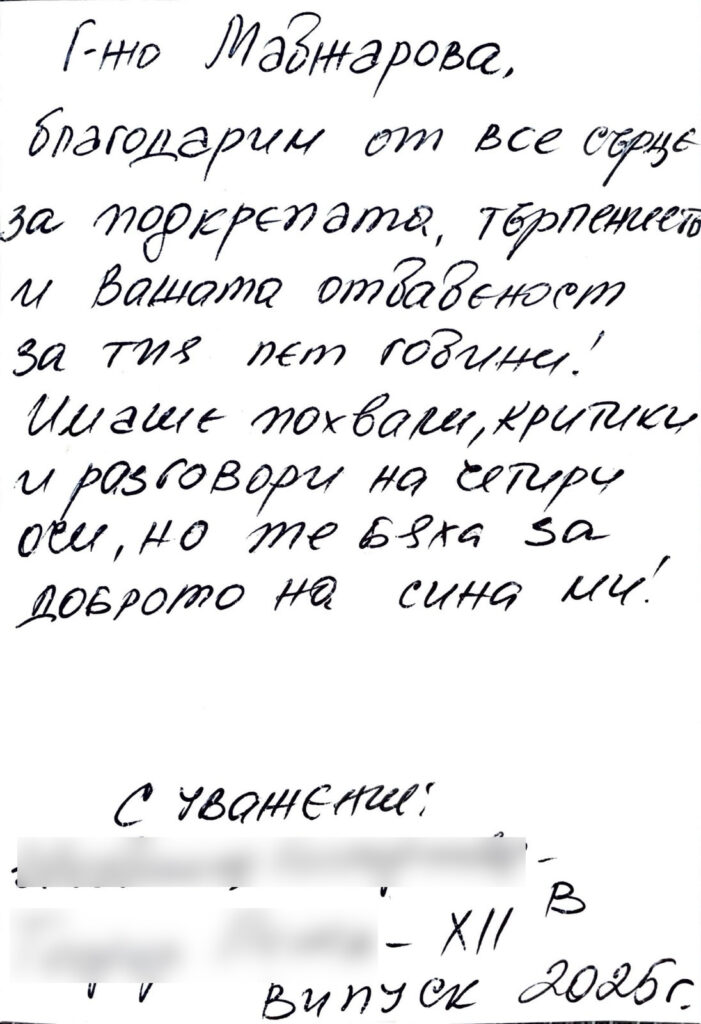 Г-жо Маджарова,
благодарим от все сърце
за подкрепата, търпението
и Вашата отдаденост
за тия пет години!
Имаше похвали, критики
и разговори на четири
очи, но те бяха за
доброто на сина ми!
С уважение:
-
В
- XII
випуск 2025г.